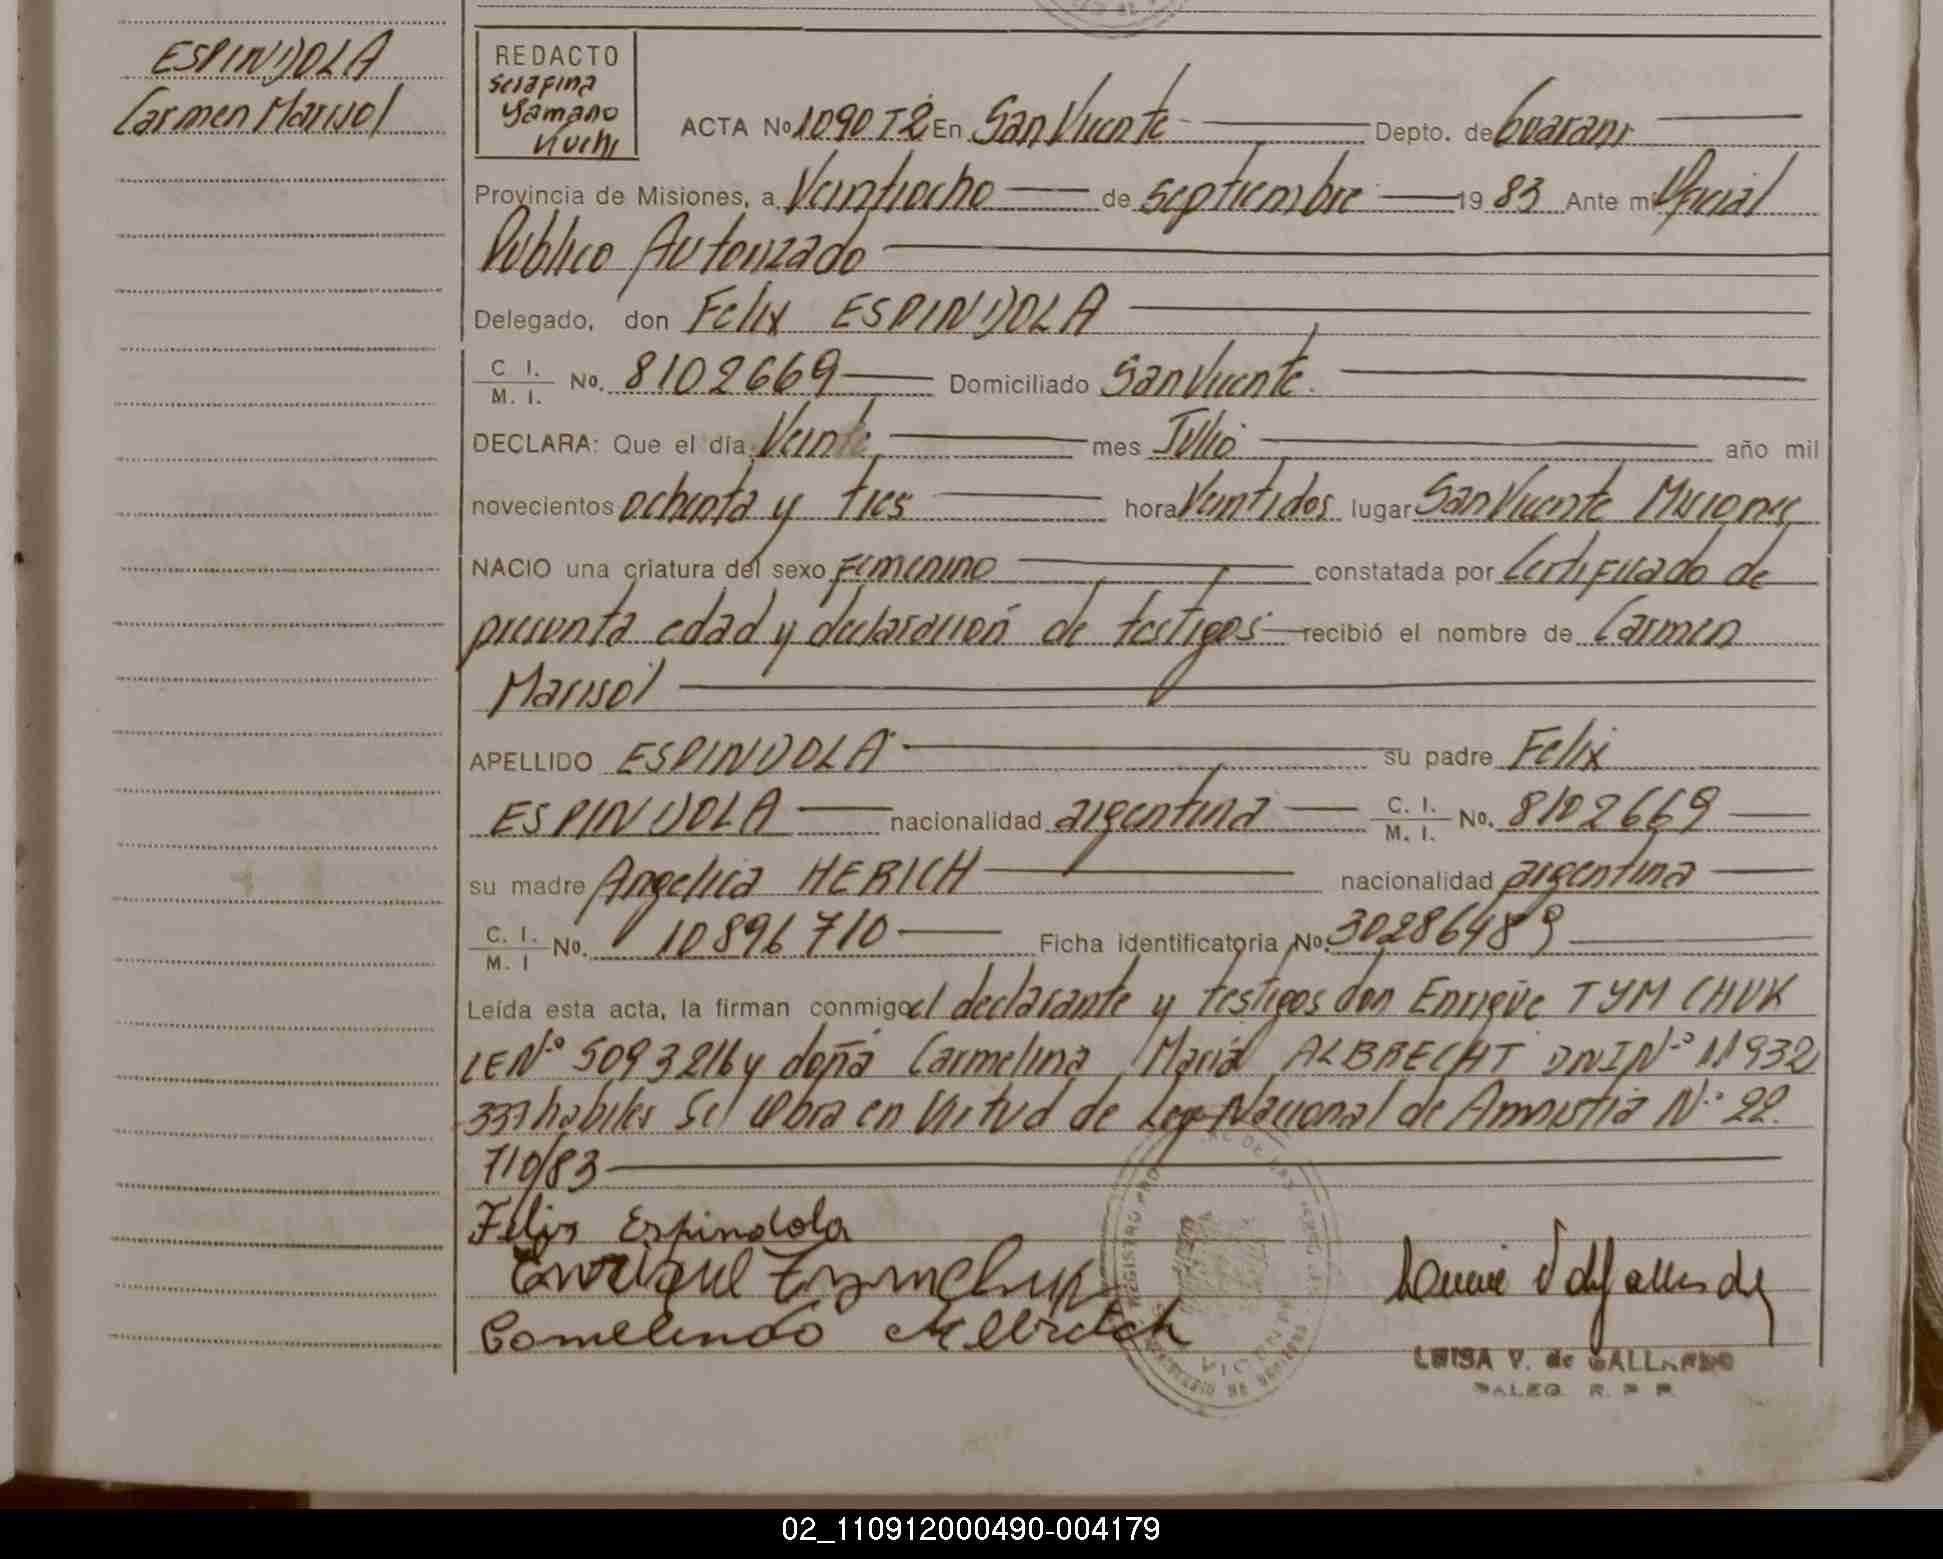 ESPINDOLA
Carmen Marisol
REDACTO
Serafina
Yamano
ACTA No 1090 T2 En San Vicente Depto. de Guarani
Provincia de Misiones, a Veintiocho de septiembre 19 83 Ante mi Oficial
Publico Autorizado
Delegado, don Felix ESPINDOLA
C. I. / M. I. No. 8102669 Domiciliado San Vicente.
DECLARA: Que el día Veinte mes Julio año mil
novecientos ochenta y tres hora Veintidos lugar San Vicente Misiones
NACIO una criatura del sexo Femenino constatada por Certificado de
presunta edad y declaración de testigos recibió el nombre de Carmen
Marisol
APELLIDO ESPINDOLA su padre Felix
ESPINDOLA nacionalidad argentina C. I. / M. I. No. 8102669
su madre Angelica HERICH nacionalidad argentina
C. I. / M. I No. 10896710 Ficha identificatoria No. 30286489
Leída esta acta, la firman conmigo el declarante y testigos don Enrique TYMCHUK
LE Nº 5093216 y doña Carmelina Maria ALBRECHT DNI Nº 11932
337 habiles Se labra en Virtud de Ley Nacional de Amnistia Nº 22.
710/83
Felix Espindola
Enrique Tymchuk
LUISA V. de GALLARDO